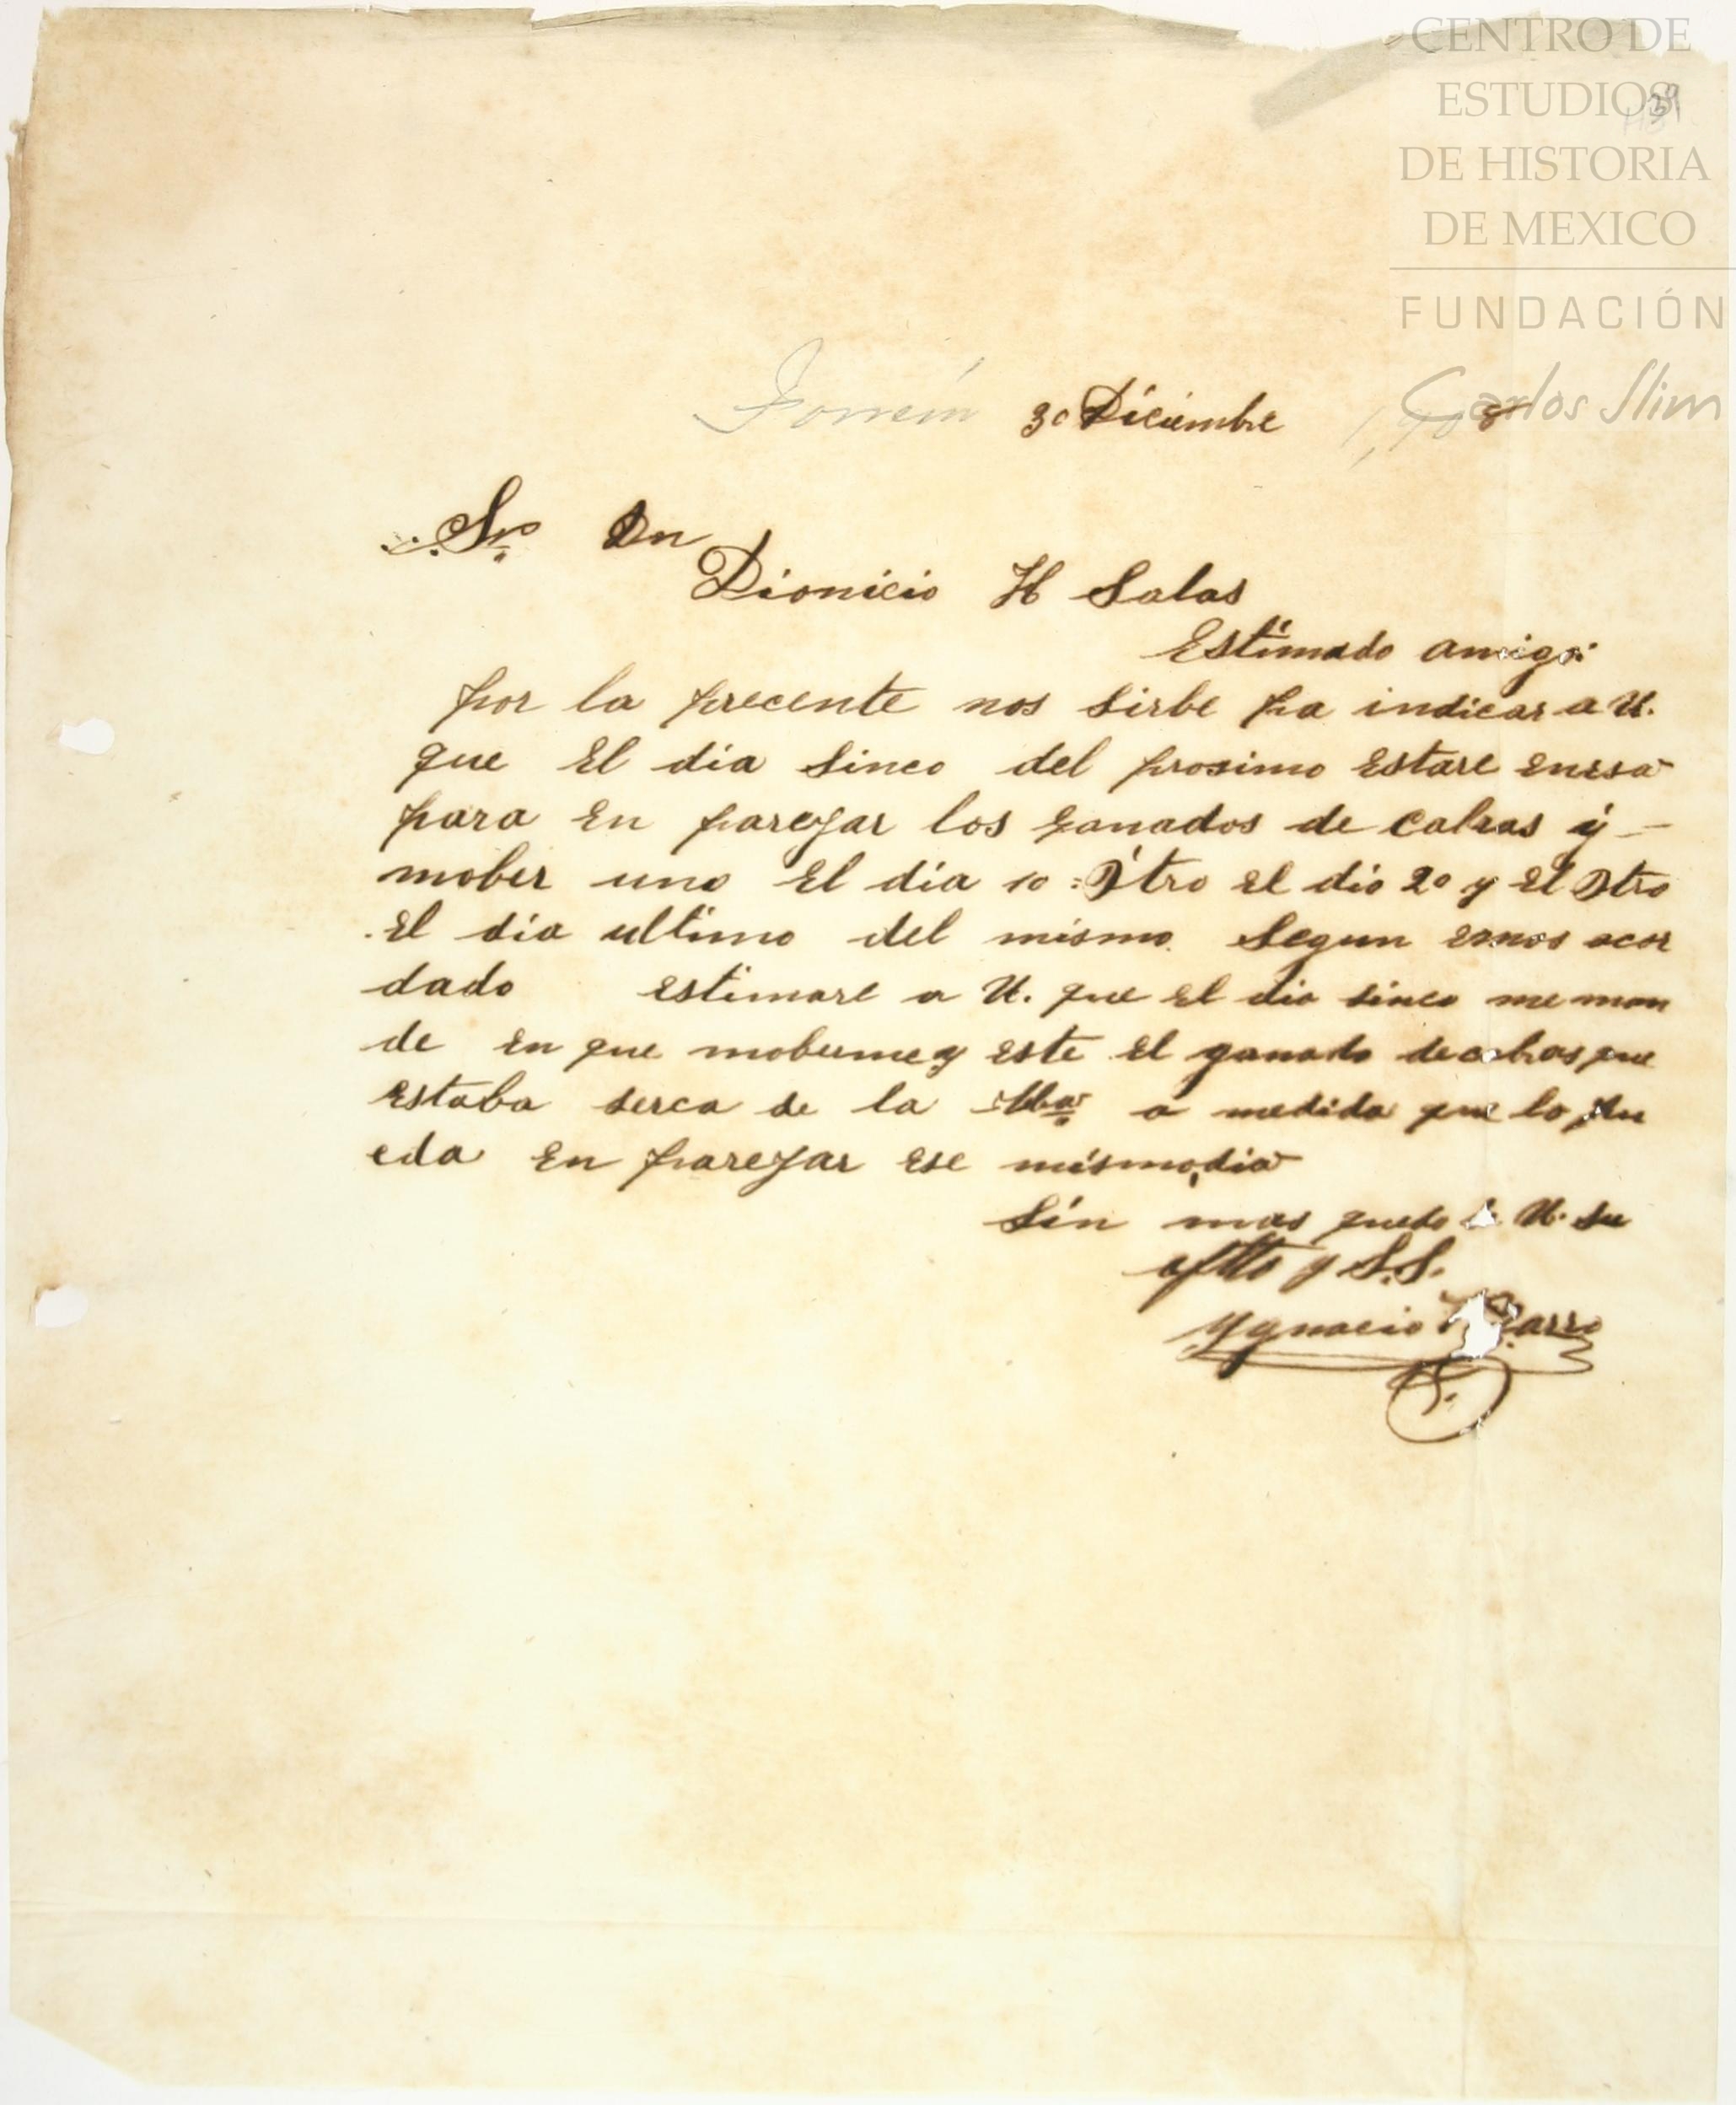 CENTRO DE
ESTUDIOS
DE HISTORIA
DE MEXICO
FUNDACIÓN
Carlos Slim
Torreón 30 Diciembre 1,908
Sr. Dn
Dionicio H Salas
Estimado amigo:
por la precente nos sirbe pa indicar a U.
que el dia sinco del procimo estare enesa
para en parejar los ganados de cabras y
mober uno el dia 10 : Otro el dia 20 y el Otro
el dia ultimo del mismo. Segun emos acor
dado estimare a U. que el dia sinco me man
de en que moberme y este el ganado de cabras que
estaba serca de la a medida que lo pu
eda en parejar ese mismo dia
Sin mas quedo de U. su
aftto y S.S.
Ygnacio